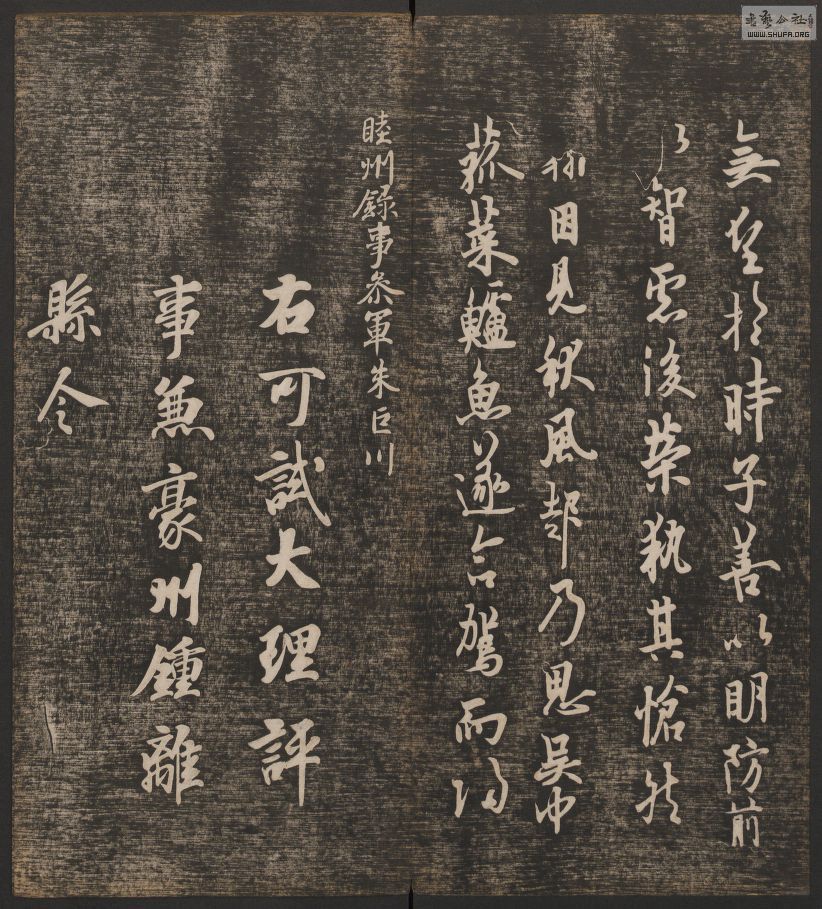 無望於時子善以明防前
以智慮後榮執其愴然
翰因見秋風起乃思吳中
菰菜鱸魚遂命駕而歸
睦州録事参軍朱巨川
右可試大理評
事兼豪州鍾離
縣令
WWW.SHUFA.ORG